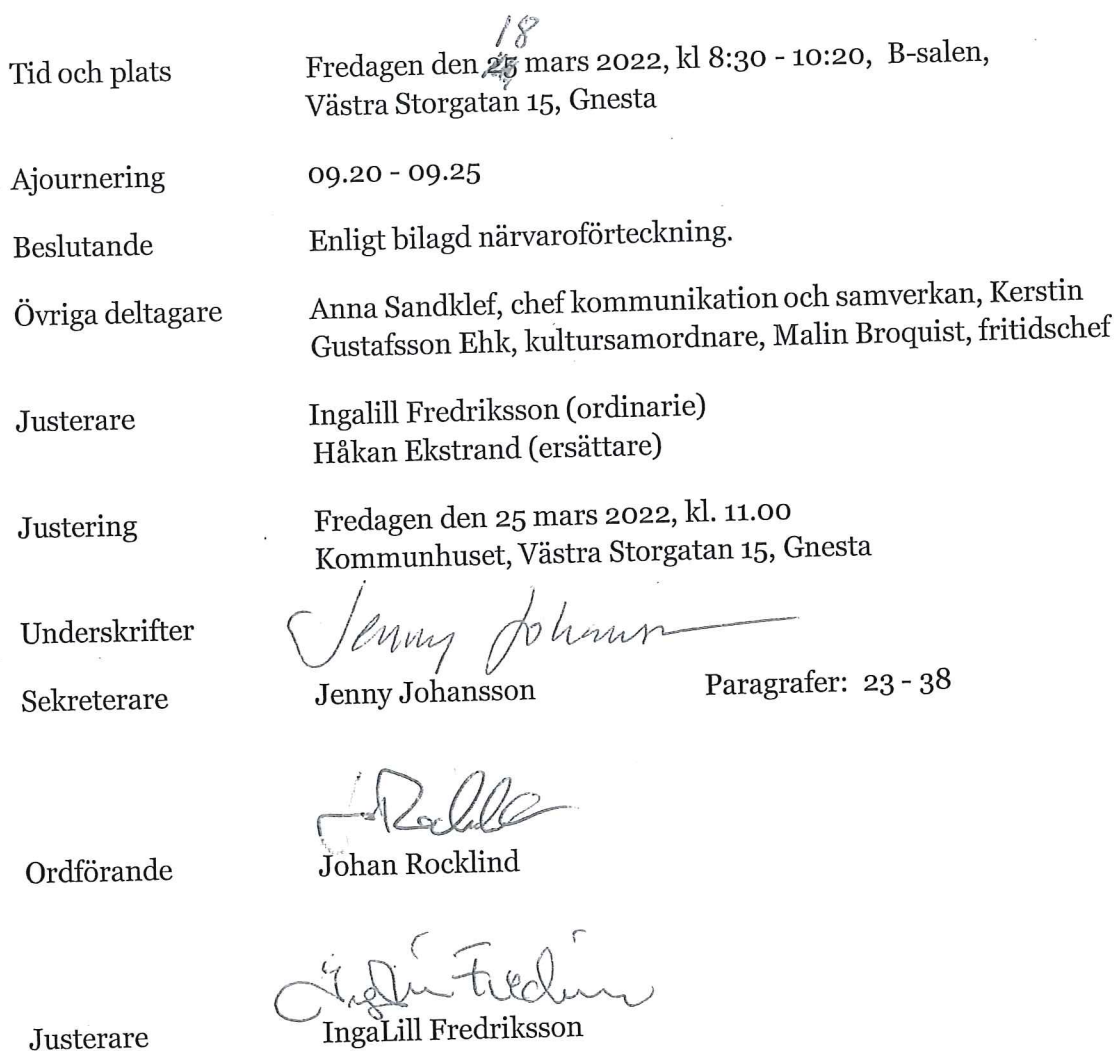 18
Tid och plats Fredagen den 25 mars 2022, kl 8:30 - 10:20, B-salen,
Västra Storgatan 15, Gnesta
Ajournering 09.20 - 09.25
Beslutande Enligt bilagd närvaroförteckning.
Övriga deltagare Anna Sandklef, chef kommunikation och samverkan, Kerstin
Gustafsson Ehk, kultursamordnare, Malin Broquist, fritidschef
Justerare Ingalill Fredriksson (ordinarie)
Håkan Ekstrand (ersättare)
Justering Fredagen den 25 mars 2022, kl. 11.00
Kommunhuset, Västra Storgatan 15, Gnesta
Underskrifter Jenny Johansson
Sekreterare Jenny Johansson Paragrafer: 23 - 38
Ordförande Johan Rocklind
Justerare IngaLill Fredriksson